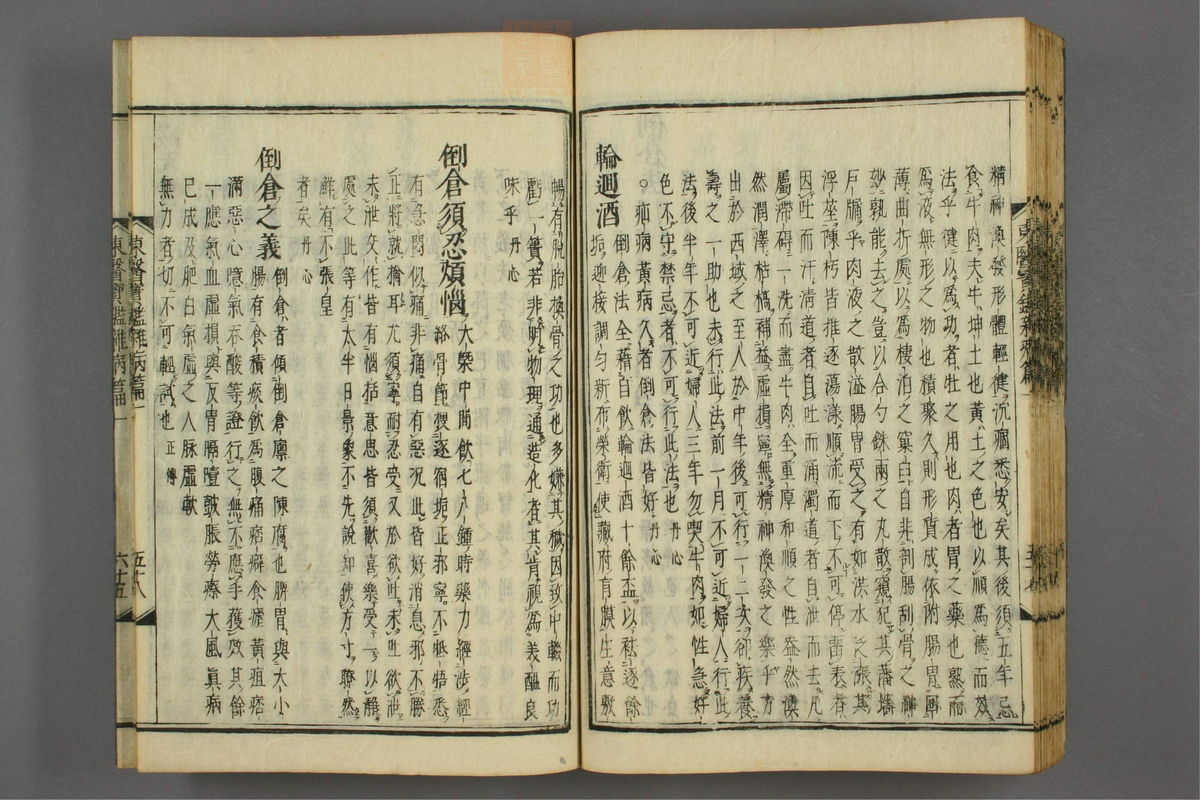 精神渙發形體輕健沉痼悉安矣其後須五年忌
食牛肉夫牛坤土也黃土之色也以順爲德而效
法乎健以爲功者牡之用也肉者胃之藥也熟而
爲液無形之物也積聚久則形質成依附腸胃回
薄曲折處以爲棲泊之窠臼自非剖腸刮骨之神
妙孰能去之豈以合勺銖兩之丸散窺犯其藩墻
戶牖乎肉液之散溢腸胃受之有如洪水泛漲其
浮莝陳朽皆推逐蕩漾順流而下不可停畱表者
因吐而汗淸道者自吐而涌濁道者自泄而去凡
屬滯碍一洗而盡牛肉全重厚和順之性益然渙
然潤澤枯槁補益虛損寧無精神渙發之樂乎方
出於西域之至人於中年後可行一二次卻疾養
壽之一助也未行此法前一月不可近婦人行此
法後半年不可近婦人三年勿喫牛肉如性急好
色不守禁忌者不可行此法也 丹心
○疝病黃病久者倒倉法皆好 丹心
輪迴酒
倒倉法全藉自飮輪迴酒十餘盃以祛逐餘
垢迎接調勻新布榮衛使藏府肓膜生意敷
暢有脫胎換骨之功也多嫌其穢因致中輟而功
虧一簣若非明物理通造化者其肯視爲美醞良
味乎 丹心
倒倉須忍煩惱
大槩中間飮七八鍾時藥力經涉經
絡骨節搜逐宿垢正邪寧不牴牾悉
有急悶似痛非痛自有惡況此皆好消息邪不勝
正將就擒耳尤須寧耐忍受又於欲吐未吐欲泄
未泄交作皆有惱括意思皆須歡喜樂受一以靜
處之此等有太半日景象不先說知使方寸瞭然
鮮有不張皇
者矣 丹心
倒倉之義
倒倉者傾倒倉廩之陳腐也脾胃與大小
腸有食積痰飮爲腹痛痞癖食瘧黃疸痞
滿惡心噫氣呑酸等證行之無不應手獲效其餘
一應氣血虛損與反胃膈噎皷脹勞瘵大風眞病
已成及肥白氣虛之人脉虛軟
無力者切不可輕試也 正傳
東醫寶鑑雜病篇一
五十八
東醫寶鑑雜病篇一
六十五
東醫寶鑑雜病篇一